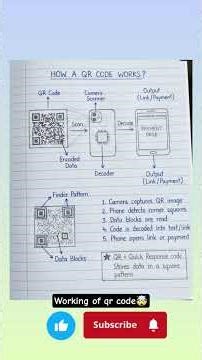 HOW A QR CODE WORKS?
QR Code
Camera Scanner
Output
(Link/Payment)
Scan
Decode
Encoded
Data
Decoder
Output
(Link/Payment)
Finder Pattern
Data Blocks
1. Camera captures QR image
2. Phone detects corner squares
3. Data blocks are read
4. Code is decoded into text/link
5. Phone opens link or payment
★ QR = Quick Response code
Stores data in a square
pattern
Working of qr code🤯
Subscribe